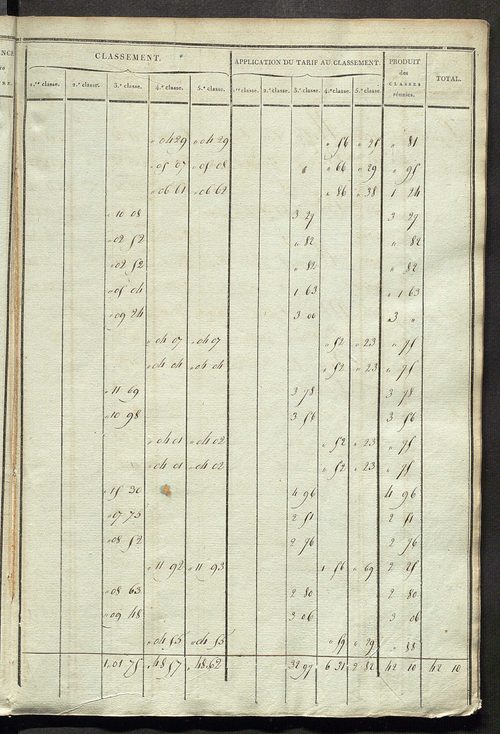 CLASSEMENT. APPLICATION DU TARIF AU CLASSEMENT. PRODUIT des CLASSES réunies. TOTAL.
1.re classe. 2.e classe. 3.e classe. 4.e classe. 5.e classe. 1.re classe. 2.e classe. 3.e classe. 4.e classe. 5.e classe.
" 04 29 " 04 29 " 56 " 25 " 81
" 05 07 " 05 08 " 66 " 29 " 95
" 06 61 " 06 62 " 86 " 38 1 24
" 10 08 3 27 3 27
" 02 52 " 82 " 82
" 02 52 " 82 " 82
" 05 04 1 63 " 1 63
" 09 24 3 00 " 3 "
" 04 07 " 04 07 " 52 " 23 " 75
" 04 04 " 04 04 " 52 " 23 " 75
" 11 69 3 78 3 78
" 10 98 3 56 3 56
" 04 01 " 04 02 " 52 " 23 " 75
" 04 01 " 04 02 " 52 " 23 " 75
" 15 30 4 96 4 96
" 07 73 2 51 2 51
" 08 52 2 76 2 76
" 11 92 " 11 93 1 56 " 69 2 25
" 08 63 2 80 2 80
" 09 48 3 06 3 06
" 04 53 " 04 53 " 59 " 29 " 88
1 01 75 " 48 57 " 48 62 32 97 6 31 2 82 42 10 42 10